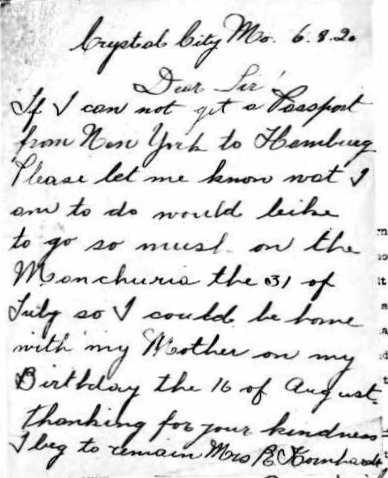 Crystal City Mo. 6.8.20
Dear Sir!
If I can not get a Passport
from New York to Hamburg
Please let me know wat I
am to do would like
to go so much on the
Manchuria the 31 of
July so I could be home
with my Mother on my
Birthday the 16 of August
thanking for your kindness
I beg to remain Mrs E Kornhardt